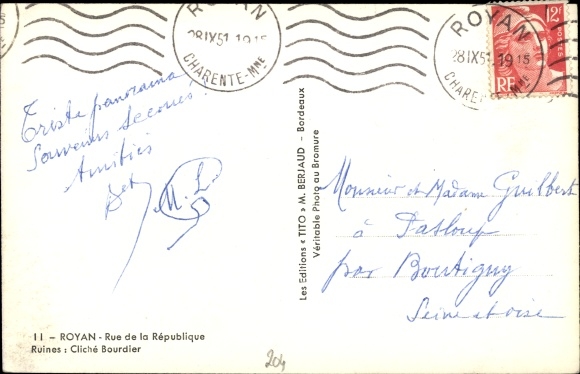 ROYAN
28 IX 51 19 15
CHARENTE-Mme
ROYAN
28 IX 51 19 15
CHARENTE-Mme
12F
RF
Triste panorama
Souvenirs
Amitiés
Les Editions « TITO » M. BERJAUD - Bordeaux
Véritable Photo au Bromure
Monsieur et Madame Guilbert
à Pasloup
par Boutigny
Seine et oise
11 - ROYAN - Rue de la République
Ruines : Cliché Bourdier
204